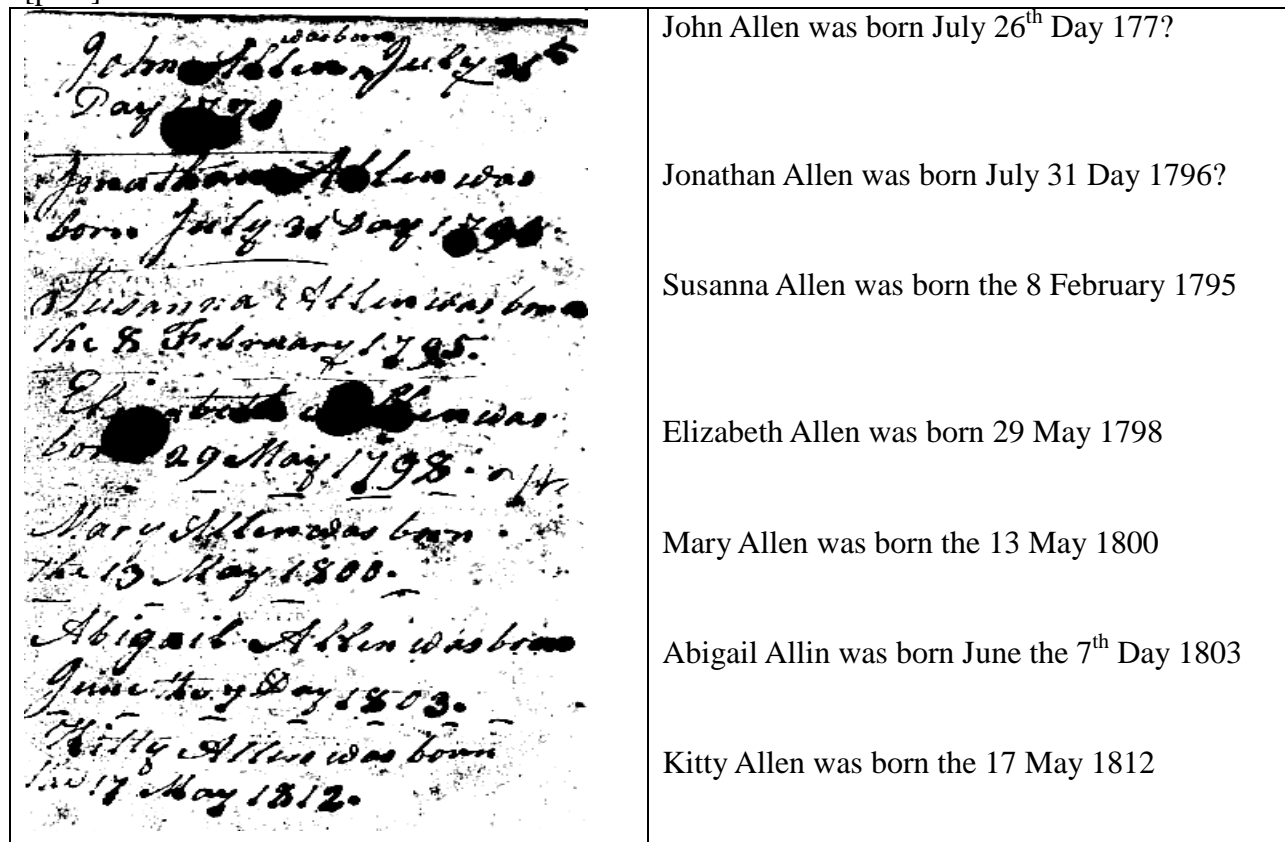 was born
John Allen July
Day
Jonathan Allen was
born July 31 Day
Susanna Allen was born
the 8 February 1795.
Elizabeth Allen was
born 29 May 1798.
Mary Allen was born
the 13 May 1800.
Abigail Allin was born
June the 7 Day 1803.
Kitty Allen was born
the 17 May 1812.
John Allen was born July 26th Day 177?
Jonathan Allen was born July 31 Day 1796?
Susanna Allen was born the 8 February 1795
Elizabeth Allen was born 29 May 1798
Mary Allen was born the 13 May 1800
Abigail Allin was born June the 7th Day 1803
Kitty Allen was born the 17 May 1812